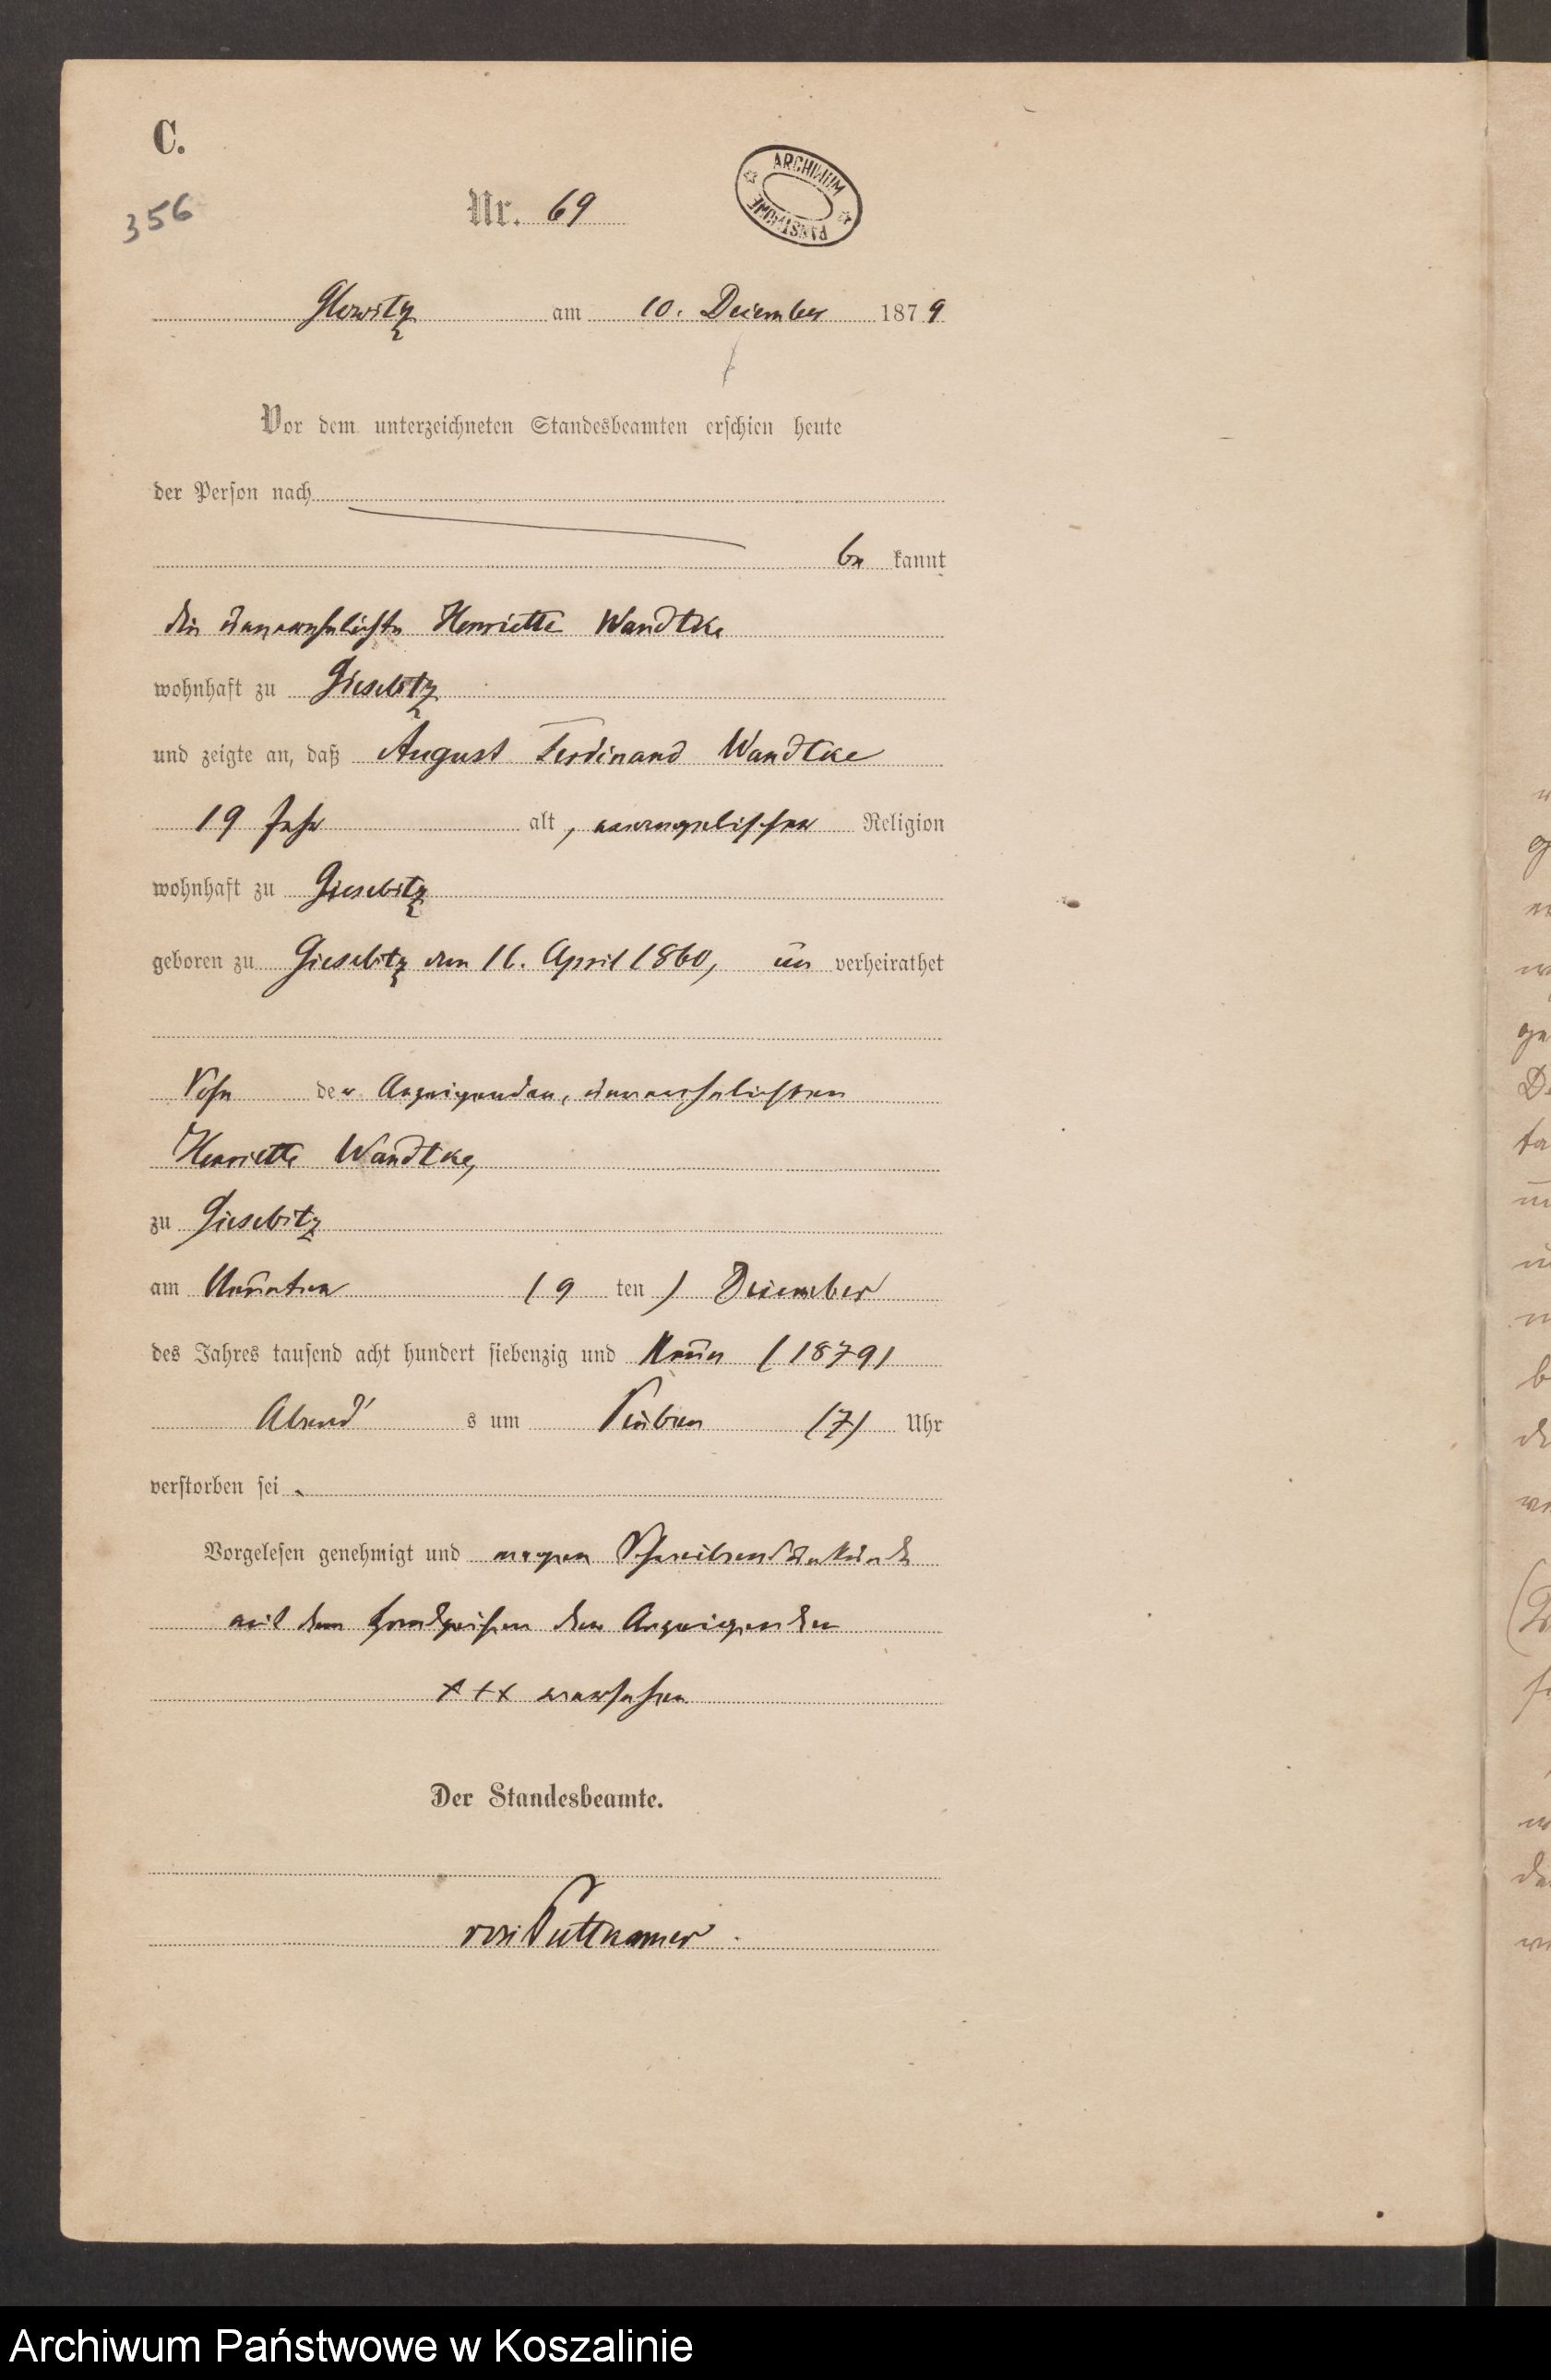 C.
356
Nr. 69
ARCHIWUM PAŃSTWOWE
Glowitz am 10. December 1879
Vor dem unterzeichneten Standesbeamten erschien heute
der Person nach
be kannt
die unverehelichte Henriette Wandtke
wohnhaft zu Giesebitz
und zeigte an, daß August Ferdinand Wandtke
19 Jahr alt, evangelischer Religion
wohnhaft zu Giesebitz
geboren zu Giesebitz den 16. April 1860, un verheirathet
Sohn der Anzeigenden, unverehelichten
Henriette Wandtke,
zu Giesebitz
am Neunten (9 ten) December
des Jahres tausend acht hundert siebenzig und Neun (1879)
Abend s um Sieben (7) Uhr
verstorben sei.
Vorgelesen genehmigt und wegen Schreibensunkunde
mit dem Handzeichen der Anzeigenden
+++ versehen
Der Standesbeamte.
von Puttkamer.
Archiwum Państwowe w Koszalinie